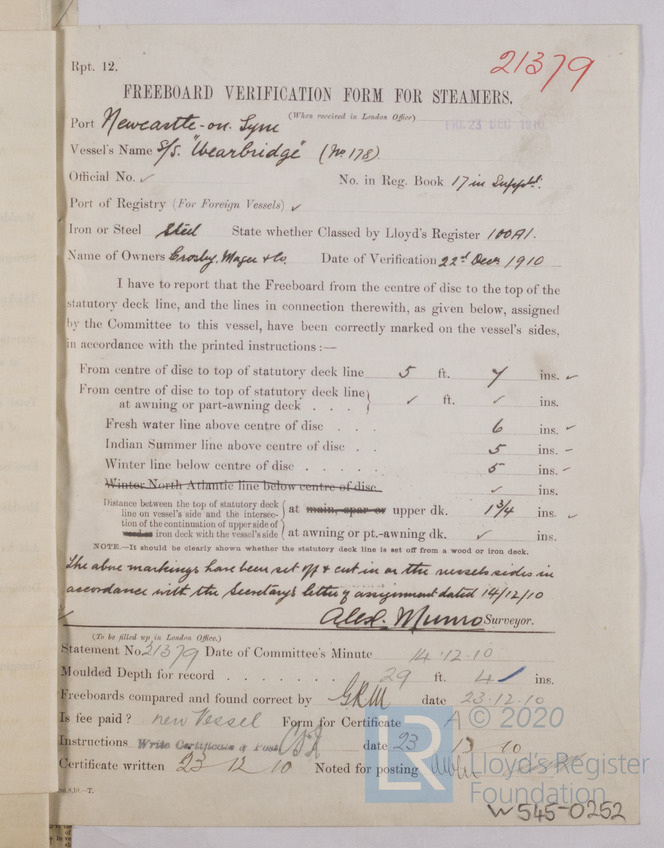 Rpt. 12.
21379
FREEBOARD VERIFICATION FORM FOR STEAMERS.
(When received in London Office)
Port Newcastle-on-Tyne FRI. 23 DEC 1910
Vessel's Name S/S. "Wearbridge" (No. 178)
Official No. ✓ No. in Reg. Book 17 in Supplt.
Port of Registry (For Foreign Vessels) ✓
Iron or Steel Steel State whether Classed by Lloyd's Register 100A1.
Name of Owners Crosby, Magee & Co. Date of Verification 22d Decr 1910
I have to report that the Freeboard from the centre of disc to the top of the
statutory deck line, and the lines in connection therewith, as given below, assigned
by the Committee to this vessel, have been correctly marked on the vessel's sides,
in accordance with the printed instructions :—
From centre of disc to top of statutory deck line 5 ft. 7 ins. ✓
From centre of disc to top of statutory deck line
at awning or part-awning deck . . . ✓ ft. ✓ ins.
Fresh water line above centre of disc . . . 6 ins. ✓
Indian Summer line above centre of disc . . 5 ins. ✓
Winter line below centre of disc . . . . . 5 ins. ✓
Winter North Atlantic line below centre of disc ✓ ins.
Distance between the top of statutory deck
line on vessel's side and the intersec- at main, spar or upper dk. 1 3/4 ins. ✓
tion of the continuation of upper side of
iron deck with the vessel's side at awning or pt.-awning dk. ✓ ins.
NOTE.—It should be clearly shown whether the statutory deck line is set off from a wood or iron deck.
The above markings have been set off & cut in on the vessels sides in
accordance with the Secretary's letter of assignment dated 14/12/10
Alexr. Munro Surveyor.
(To be filled up in London Office.)
Statement No. 21379 Date of Committee's Minute 14.12.10
Moulded Depth for record . . . . . . . 29 ft. 4 ins.
Freeboards compared and found correct by GRM date 23.12.10
Is fee paid? new Vessel Form for Certificate A
Instructions Write Certificate & Post date 23 12 10
Certificate written 23 12 10 Noted for posting
© 2020
LR
Lloyd's Register
Foundation
W545-0252